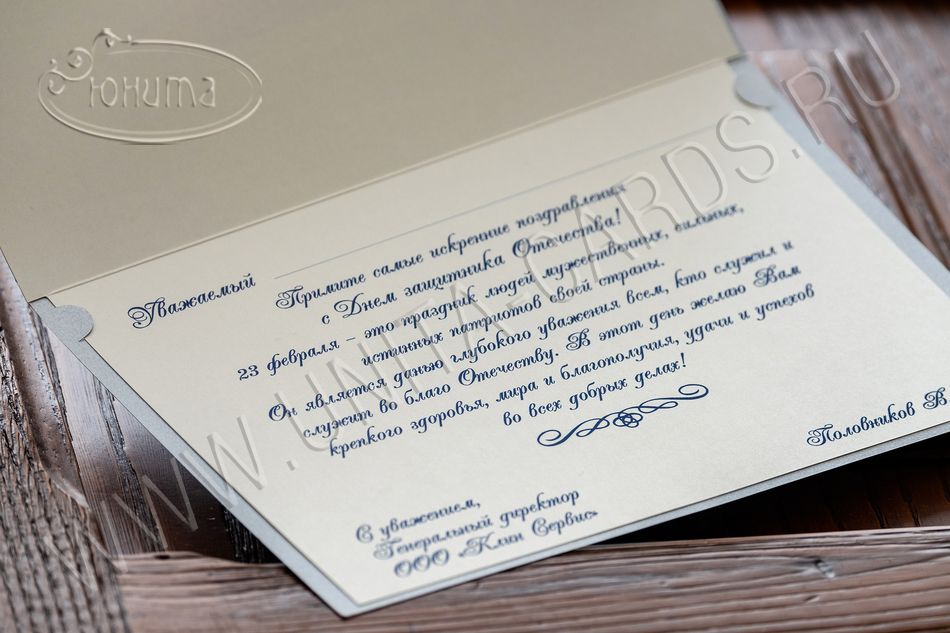 Юнита
WWW.UNITA-CARDS.RU
Уважаемый
Примите самые искренние поздравления
с Днем защитника Отечества!
23 февраля – это праздник людей мужественных, сильных,
истинных патриотов своей страны.
Он является данью глубокого уважения всем, кто служил и
служит во благо Отечеству. В этот день желаю Вам
крепкого здоровья, мира и благополучия, удачи и успехов
во всех добрых делах!
С уважением,
Генеральный директор
ООО «Клин Сервис»
Половников В